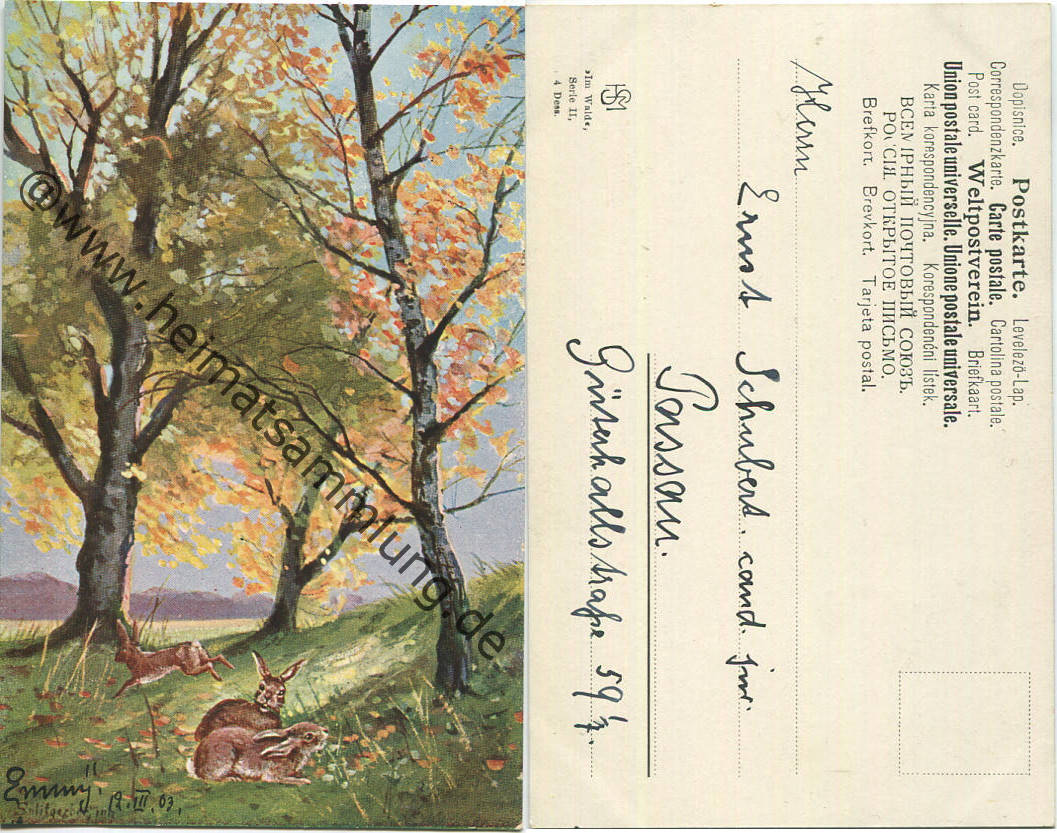 @www.heimatsammlung.de
Emmy.
12. III. 03.
Dopisnice. Postkarte. Levelező-Lap.
Correspondenzkarte. Carte postale. Cartolina postale.
Post card. Weltpostverein. Briefkaart.
Union postale universelle. Unione postale universale.
Karta korespondencyjna. Korespondenčni listek.
ВСЕМІРНЫЙ ПОЧТОВЫЙ СОЮЗЪ.
РОССІЯ. ОТКРЫТОЕ ПИСЬМО.
Brefkort. Brevkort. Tarjeta postal.
Herrn
Ernst Schubert. cand. jur.
Passau.
59
»Im Wald«,
Serie II,
4 Dess.